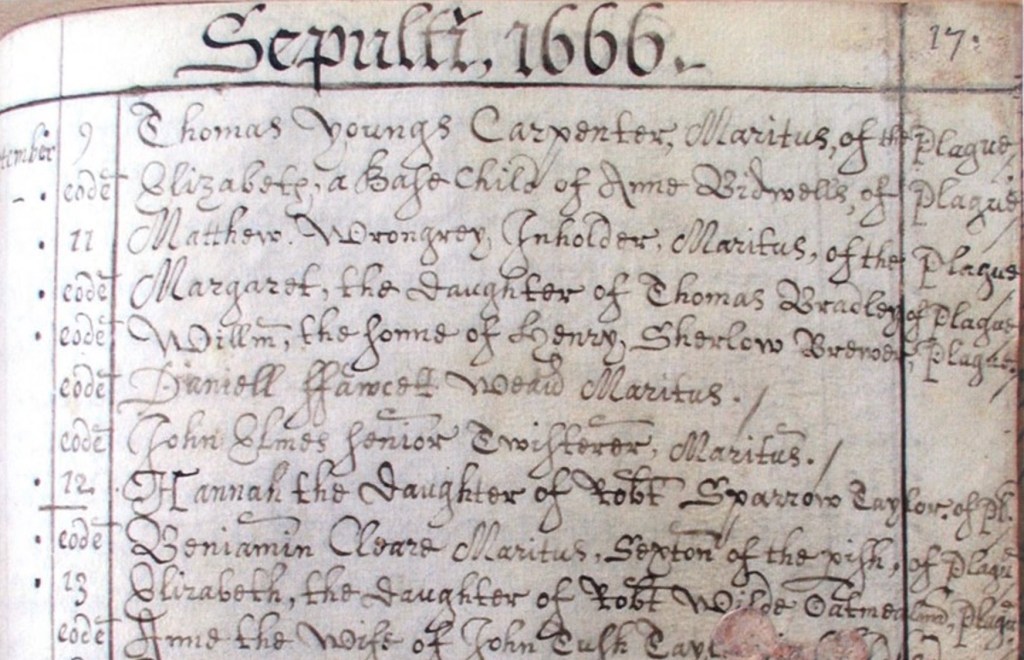 Sepulti, 1666.
17.
tember 9 Thomas Youngs Carpenter, Maritus, of the Plague /
eodē Elizabeth, a Base Child of Anne Bidwells, of Plague
11 Matthew Wrongrey, Inholder, Maritus, of the Plague
eodē Margaret, the daughter of Thomas Bradley of Plague
eodē Willm̄, the sonne of Henry Sherlow Brewer, Plague
eodē Daniell ffawcett Maritus. /
eodē John Elmes senior Twisterer, Maritus. /
12 Hannah the daughter of Robt Sparrow Taylor. of Pl.
eodē Beniamin Cleare Maritus, Sexton of the pish, of Plague
13 Elizabeth, the daughter of Robt Wilde Plague
eodē Anne the Wife of John Tusk